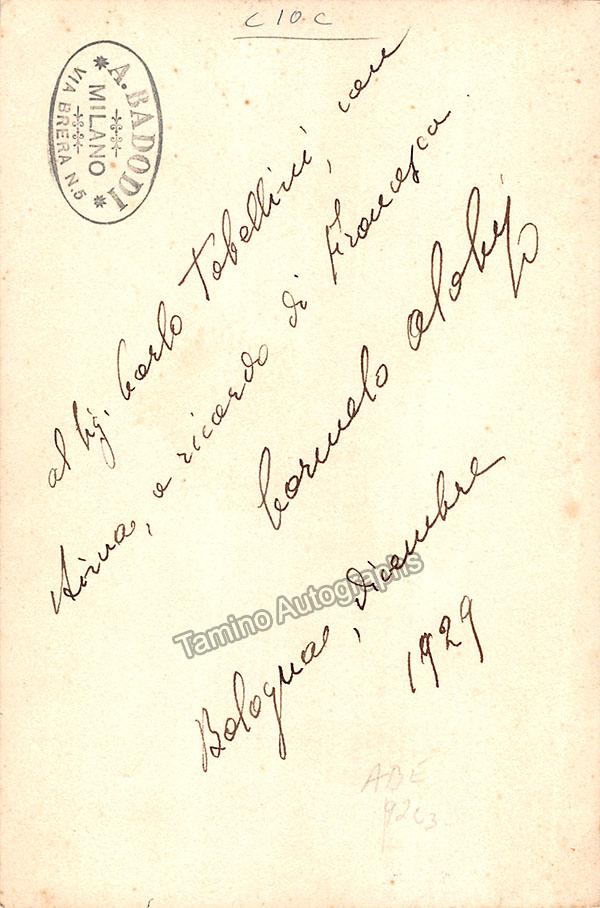 C10C
A. BADODI
MILANO
VIA BRERA N.5
al Sig. Carlo Tobellini, con
stima, a ricordo di Francesca.
Carmelo Alabiso
Bologna, Dicembre
1929
Tamino Autographs
ABE